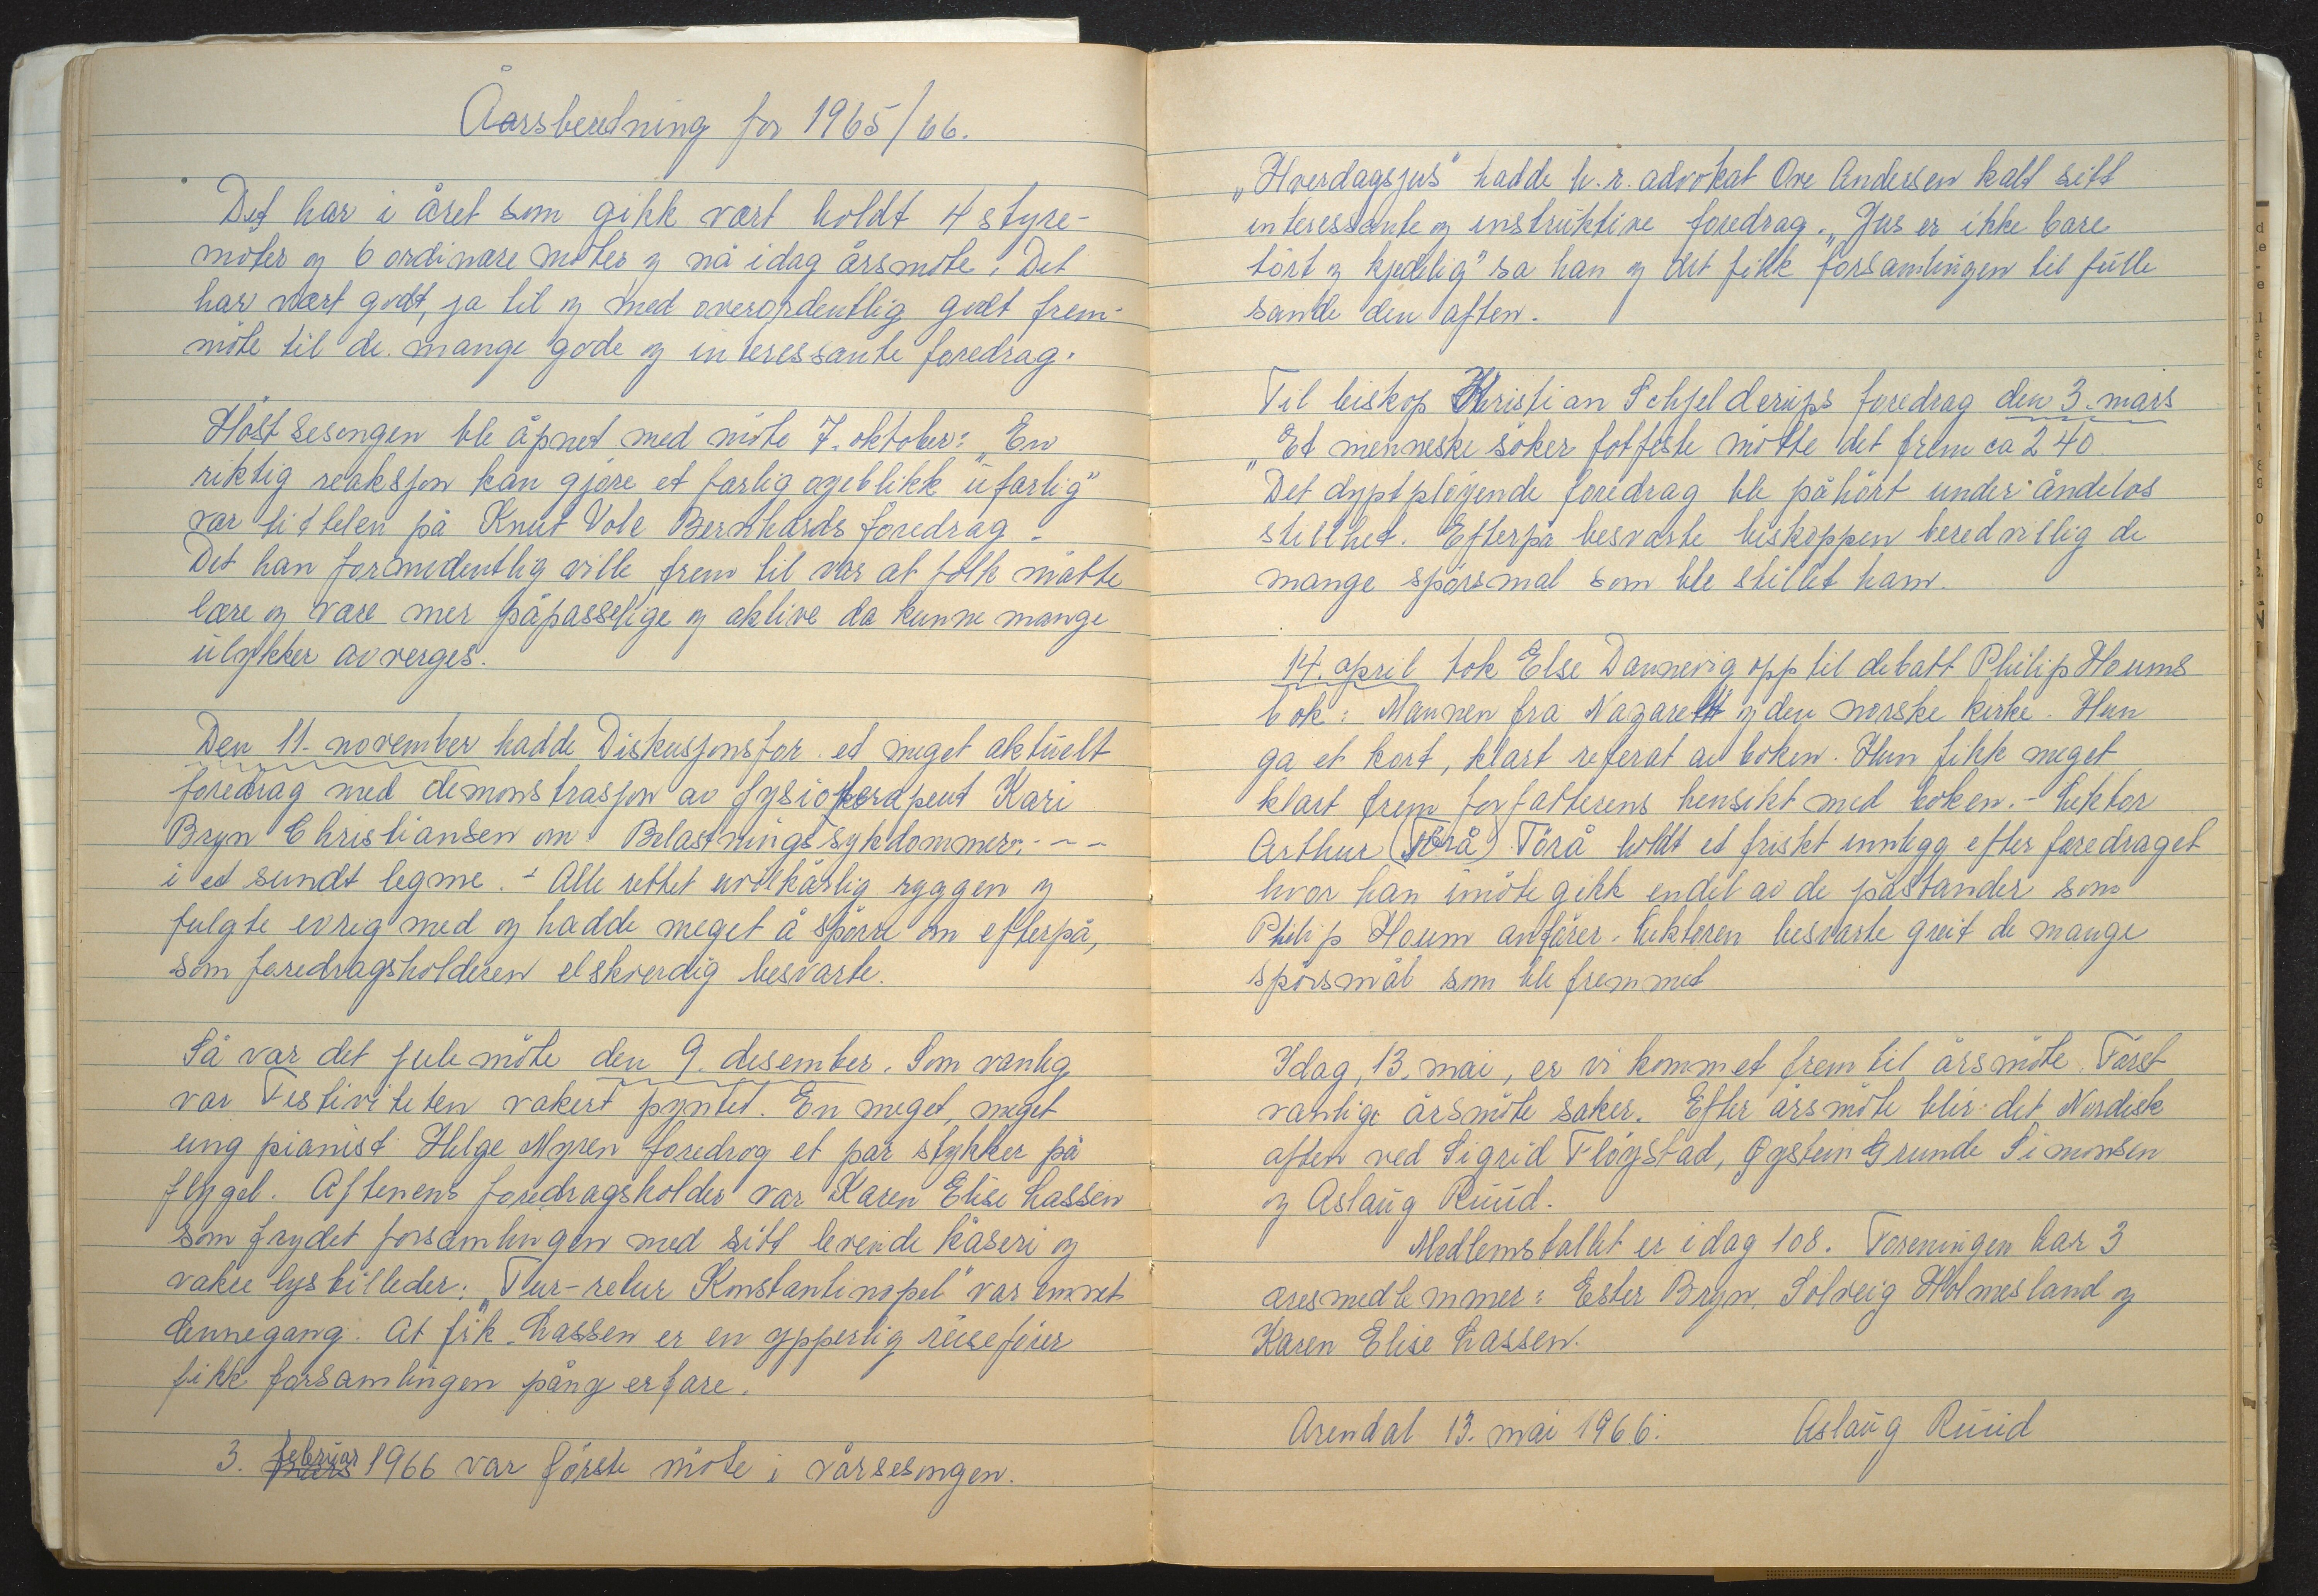 Årsberedning for 1965/66.
Det har i året som gikk vært holdt 4 styre-
møter og 6 ordinære møter og nå idag årsmøte. Det
har vært godt, ja til og med overordentlig godt frem-
møte til de mange gode og interessante foredrag.
Høstsesongen ble åpnet med møte 7. oktober: „En
riktig reaksjon kan gjøre et farlig øyeblikk ufarlig"
var tittelen på Knut Vole Bernhards foredrag -
Det han formedentlig ville frem til var at folk måtte
lære og være mer påpasselige og aktive da kunne mange
ulykker avverges.
Den 11. november hadde Diskusjonsfor. et meget aktuelt
foredrag med demonstrasjon av fysioterapeut Kari
Bryn Christiansen om Belastningssykdommer. - - -
i et sundt legme. - Alle rettet uvilkårlig ryggen og
fulgte ivrig med og hadde meget å spørre om efterpå,
som foredragsholderen elskverdig besvarte.
Så var det julemøte den 9. desember. Som vanlig
var Festiviteten vakert pyntet. En meget, meget
ung pianist Helge Myren foredrog et par stykker på
flygel. Aftenens foredragsholder var Karen Elise Lassen
som frydet forsamlingen med sitt levende kåseri og
vakre lysbilleder: „Tur-retur Konstantinopel" var emnet
denne gang. At frk. Lassen er en ypperlig reisefører
fikk forsamlingen påny erfare.
3. februar 1966 var første møte i vårsesongen.
„Hverdagsjus" hadde h.r. advokat Ove Andersen kalt sitt
interessante og instruktive foredrag. „Jus er ikke bare
tørt og kjedelig" sa han og det fikk forsamlingen til fulle
sande den aften.
Til biskop Kristian Schjelderups foredrag den 3. mars
„Et menneske søker fotfeste møtte det frem ca 240.
Det dyptpløyende foredrag ble påhørt under åndeløs
stillhet. Efterpå besvarte biskoppen beredvillig de
mange spørsmål som ble stillet ham.
14. april tok Else Dannevig opp til debatt Philip Houms
bok: Mannen fra Nazareth og den norske kirke. Hun
ga et kort, klart referat av boken. Hun fikk meget
klart frem forfatterens hensikt med boken. - Lektor
Arthur (Torå) Törå holdt et friskt innlegg efter foredraget
hvor han imøtegikk endel av de påstander som
Philip Houm anfører. Lektoren besvarte greit de mange
spørsmål som ble fremmet
Idag, 13. mai, er vi kommet frem til årsmøte. Først
vanlige årsmøte saker. Efter årsmøte blir det Nordisk
aften ved Sigrid Fløystad, Øystein Grunde Simonsen
og Aslaug Ruud.
Medlemstallet er idag 108. Foreningen har 3
æresmedlemmer: Ester Bryn, Solveig Holmesland og
Karen Elise Lassen.
Arendal 13. mai 1966. Aslaug Ruud